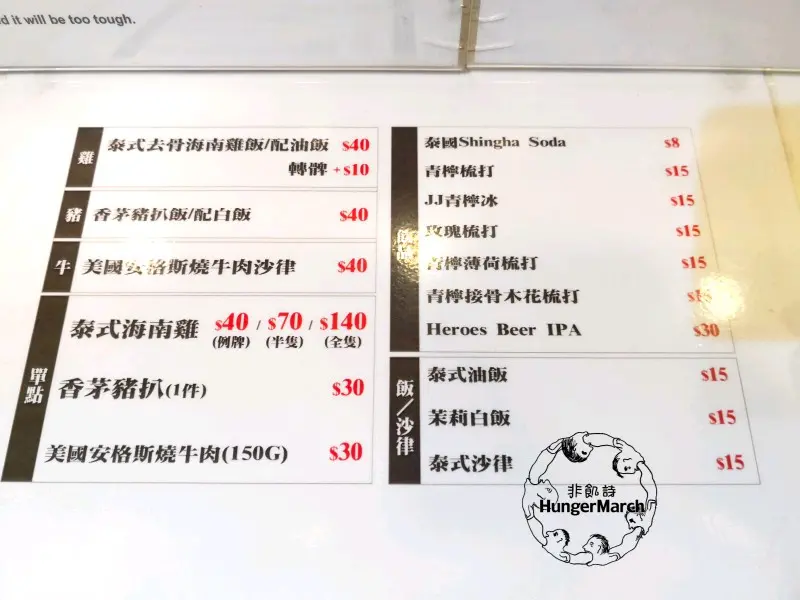 d it will be too tough.
雞
泰式去骨海南雞飯/配油飯 $40
轉髀 +$10
豬
香茅豬扒飯/配白飯 $40
牛
美國安格斯燒牛肉沙律 $40
單點
泰式海南雞 $40 / $70 / $140
(例牌) (半隻) (全隻)
香茅豬扒(1件) $30
美國安格斯燒牛肉(150G) $30
泰國Shingha Soda $8
青檸梳打 $15
JJ青檸冰 $15
玫瑰梳打 $15
青檸薄荷梳打 $15
青檸接骨木花梳打 $15
Heroes Beer IPA $30
飯/沙律
泰式油飯 $15
茉莉白飯 $15
泰式沙律 $15
非飢詩
HungerMarch